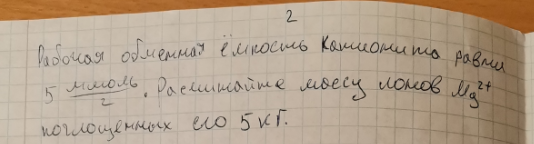 2
Рабочая обменная ёмкость катионита равна
5 ммоль/г. Рассчитайте массу ионов Mg²⁺
поглощенных его 5 кг.